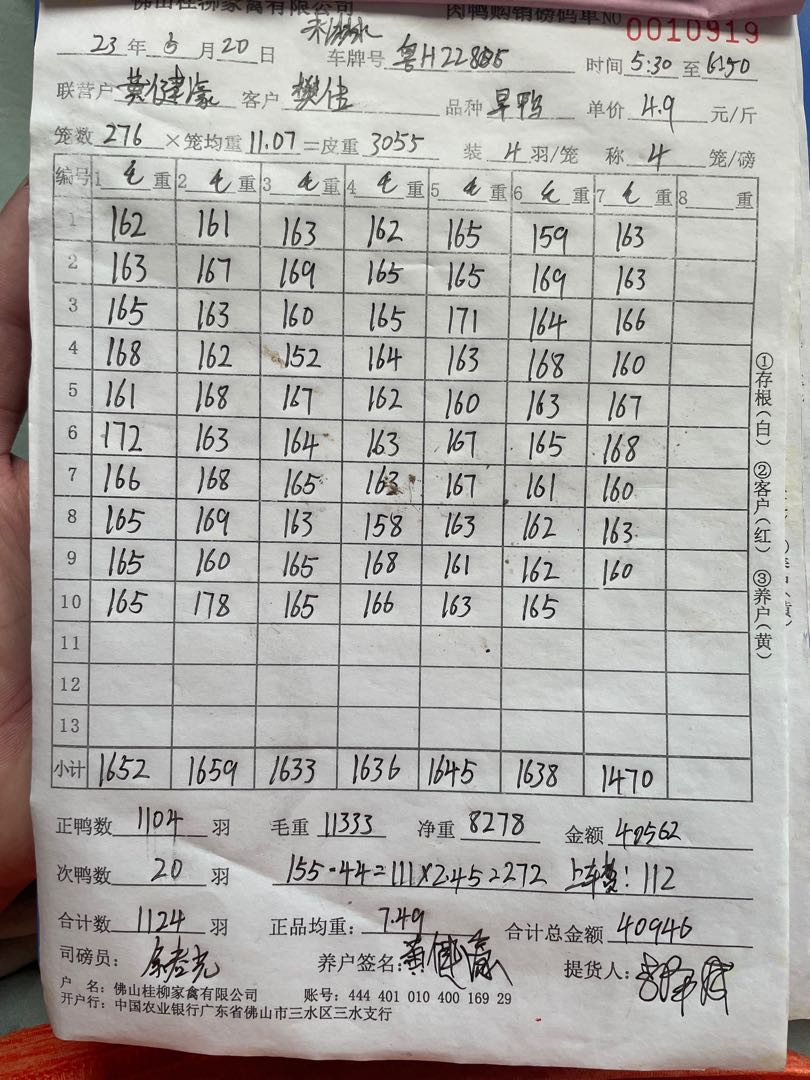 佛山桂柳家禽有限公司 肉鸭购销磅码单 NO 0010919
23 年 5 月 20 日 车牌号 粤H22865 时间 5:30 至 6:50
联营户 黄健濠 客户 樊佳 品种 旱鸭 单价 4.9 元/斤
笼数 276 ×笼均重 11.07 =皮重 3055 装 4 羽/笼 称 4 笼/磅
编号 1 毛 重 2 毛 重 3 毛 重 4 毛 重 5 毛 重 6 毛 重 7 毛 重 8 重
1 162 161 163 162 165 159 163
2 163 167 169 165 165 169 163
3 165 163 160 165 171 164 166
4 168 162 152 164 163 168 160
5 161 168 167 162 160 163 167
6 172 163 164 163 167 165 168
7 166 168 165 163 167 161 160
8 165 169 163 158 163 162 163
9 165 160 165 168 161 162 160
10 165 178 165 166 163 165
11
12
13
小计 1652 1659 1633 1636 1645 1638 1470
①存根(白) ②客户(红) ③养户(黄)
正鸭数 1104 羽 毛重 11333 净重 8278 金额 40562
次鸭数 20 羽 155-44=111×2.45=272 上车费: 112
合计数 1124 羽 正品均重: 7.49 合计总金额 40946
司磅员: 养户签名: 黄健濠 提货人:
户 名: 佛山桂柳家禽有限公司 账号: 444 401 010 400 169 29
开户行: 中国农业银行广东省佛山市三水区三水支行